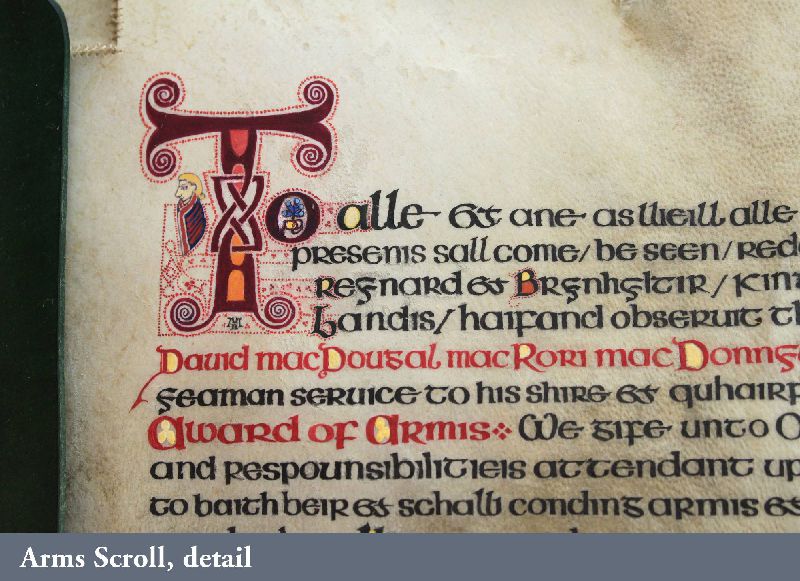 To alle & ane as weill alle
presents sall come/ be seen/ red
Regnard & Brynhyltir/ Kin
Landis/ haifand observit th
David macDougal macRori mac Donn
yeaman service to his shire & quhair
Award of Armis We gife unto
and respounsibilitieis attendant up
to baith beir & schaw conding armis &
Arms Scroll, detail